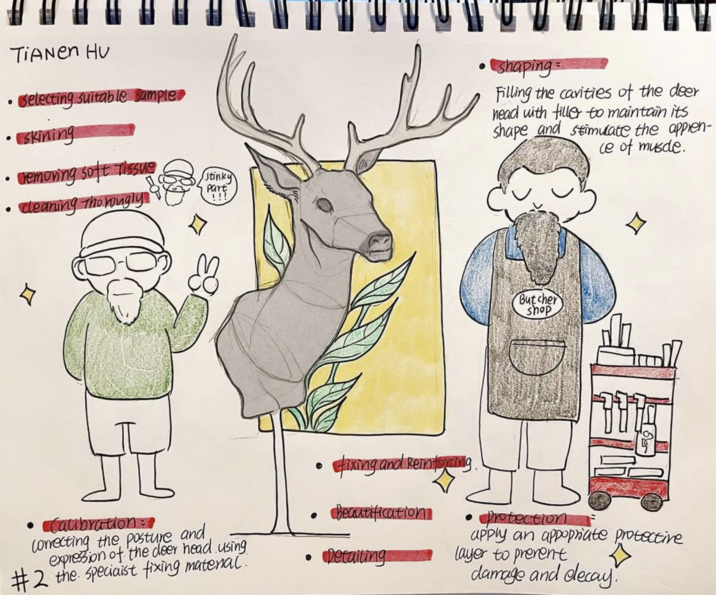 TiANEN HU
• selecting suitable sample
• skining
• removing Soft Tissue
• cleaning thorougly
stinky
part
!!!
• shaping:
Filling the cavities of the deer
head with filler to maintain its
shape and stimulate the apprien-
ce of muscle.
Butcher
shop
• fixing and Reinforcing.
• Beautification
• Detailing
• Calibration:
correcting the posture and
expression of the deer head using
the speciaist fixing material.
#2
• protection:
apply an appopriate protective
layer to prerent
damage and decay.